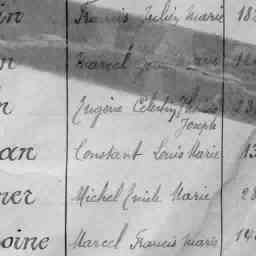 in Francis Julien Marie 18
n Marcel
n Eugène Célestin 23
Joseph
an Constant Louis Marie 13
ner Michel Emile Marie 28
oine Marcel Francis Marie 14